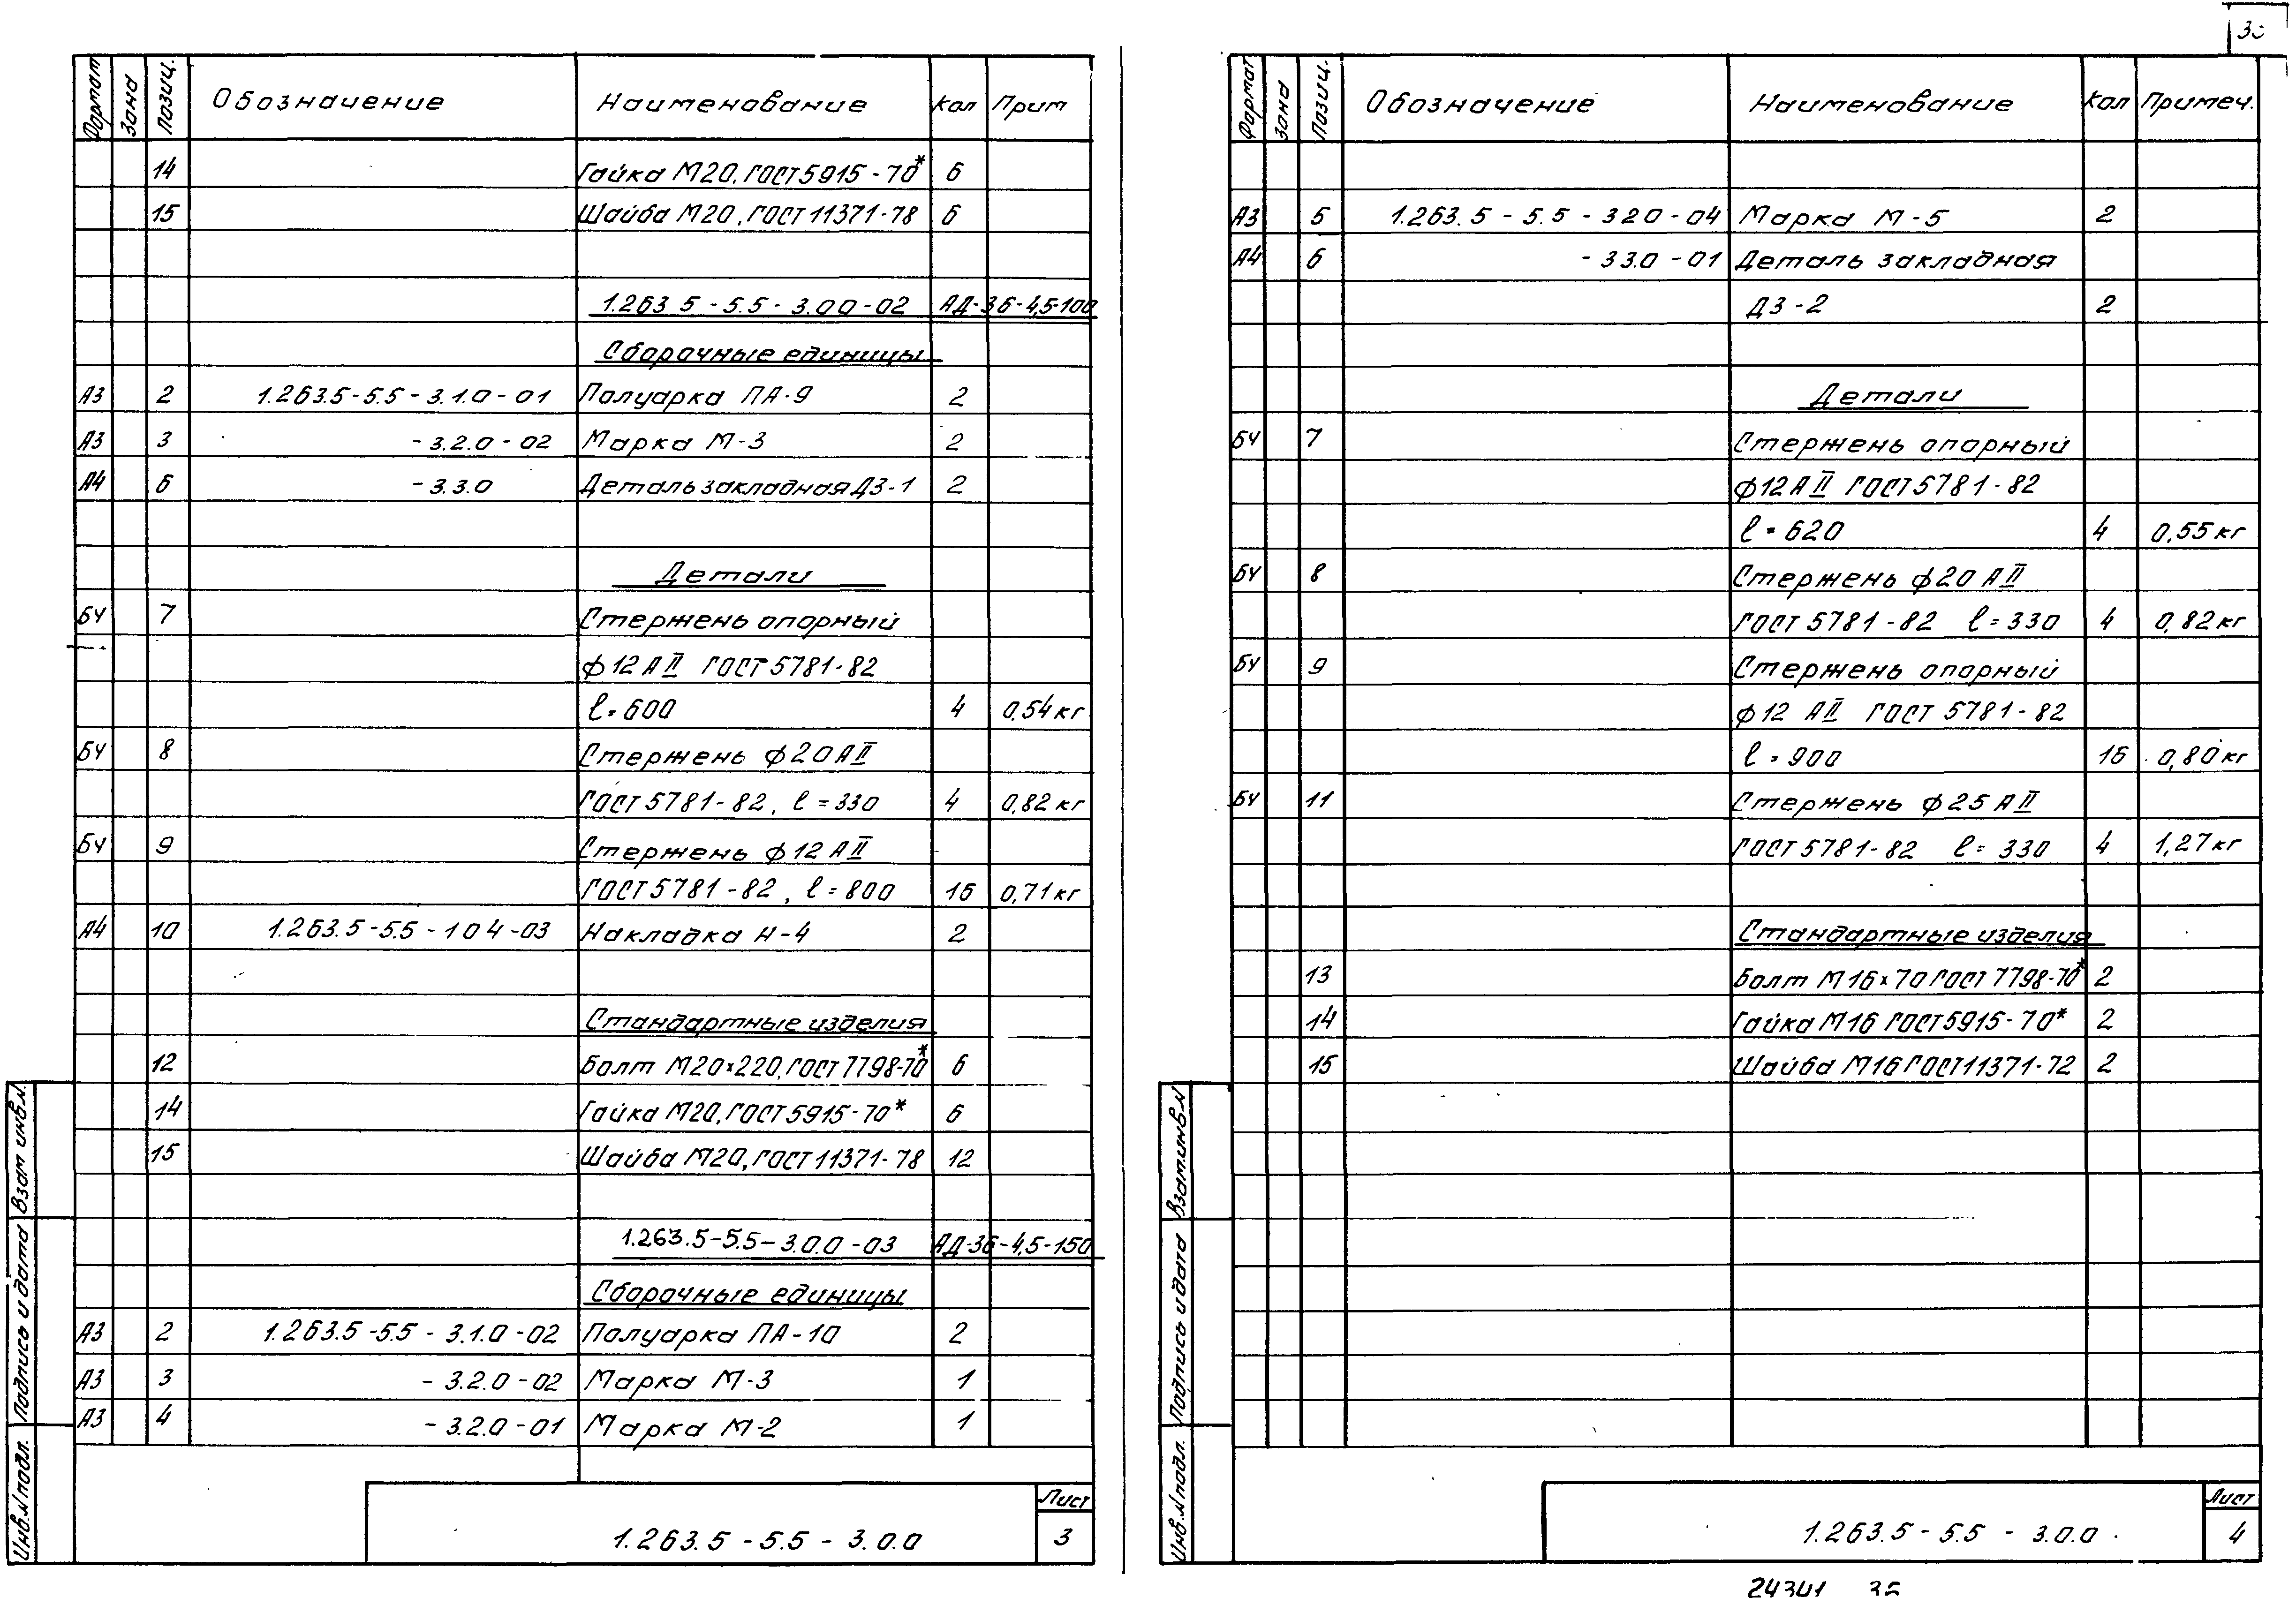 Формат Зона Позиц. Обозначение Наименование Кол Прим
14 Гайка М20, ГОСТ 5915-70* 6
15 Шайба М20, ГОСТ 11371-78 6
1.263 5-5.5-3.00-02 АД-36-4,5-100
Сборочные единицы
А3 2 1.263.5-5.5-3.1.0-01 Полуарка ПА-9 2
А3 3 -3.2.0-02 Марка М-3 2
А4 6 -3.3.0 Деталь закладная ДЗ-1 2
Детали
БЧ 7 Стержень опорный
ф12АII ГОСТ 5781-82
ℓ=600 4 0,54кг
БЧ 8 Стержень ф20АII
ГОСТ 5781-82, ℓ=330 4 0,82кг
БЧ 9 Стержень ф12АII
ГОСТ 5781-82, ℓ=800 16 0,71кг
А4 10 1.263.5-5.5-104-03 Накладка Н-4 2
Стандартные изделия
12 Болт М20×220, ГОСТ 7798-70* 6
14 Гайка М20, ГОСТ 5915-70* 6
15 Шайба М20, ГОСТ 11371-78 12
1.263.5-5.5-3.0.0-03 АД-36-4,5-150
Сборочные единицы
А3 2 1.263.5-5.5-3.1.0-02 Полуарка ПА-10 2
А3 3 -3.2.0-02 Марка М-3 1
А3 4 -3.2.0-01 Марка М-2 1
Взам инв.N
Подпись и дата
Инв.N подл.
Лист
1.263.5-5.5-3.0.0 3
Формат Зона Позиц. Обозначение Наименование Кол Примеч.
А3 5 1.263.5-5.5-320-04 Марка М-5 2
А4 6 -33.0-01 Деталь закладная
ДЗ-2 2
Детали
БЧ 7 Стержень опорный
ф12АII ГОСТ 5781-82
ℓ=620 4 0,55кг
БЧ 8 Стержень ф20АII
ГОСТ 5781-82 ℓ=330 4 0,82кг
БЧ 9 Стержень опорный
ф12 АII ГОСТ 5781-82
ℓ=900 16 0,80кг
БЧ 11 Стержень ф25АII
ГОСТ 5781-82 ℓ=330 4 1,27кг
Стандартные изделия
13 Болт М16×70 ГОСТ 7798-70* 2
14 Гайка М16 ГОСТ 5915-70* 2
15 Шайба М16 ГОСТ 11371-72 2
Взам.инв.N
Подпись и дата
Инв.N подл.
Лист
1.263.5-5.5-3.0.0 4